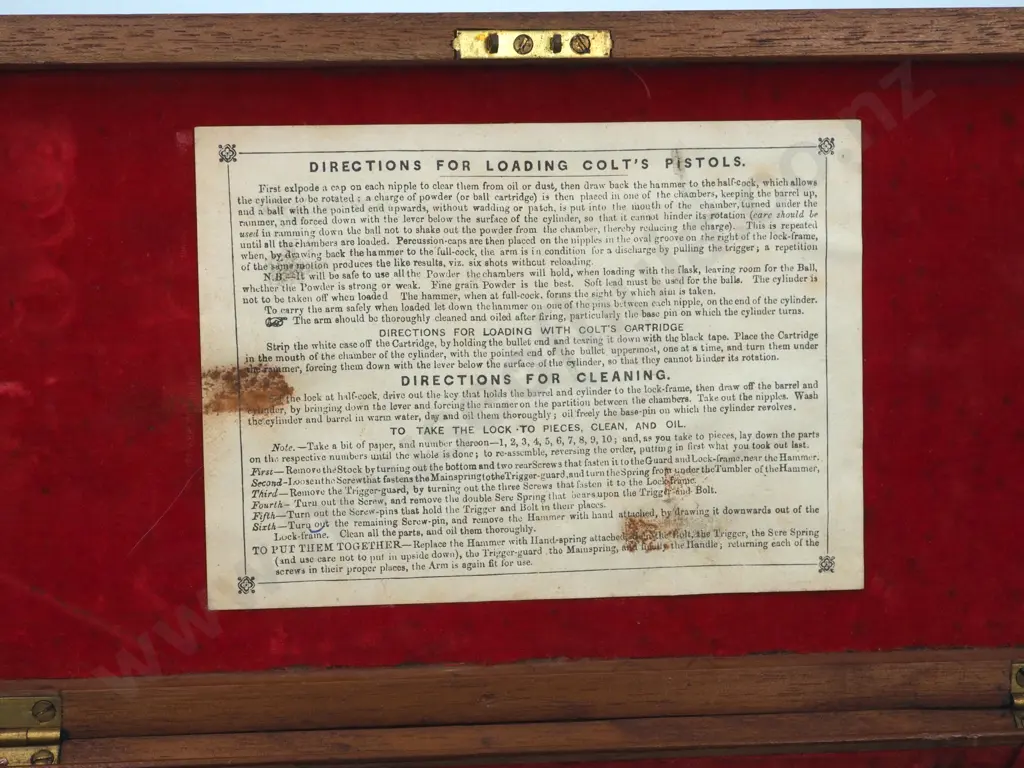 DIRECTIONS FOR LOADING COLT'S PISTOLS.
First exlpode a cap on each nipple to clear them from oil or dust, then draw back the hammer to the half-cock, which allows
the cylinder to be rotated; a charge of powder (or ball cartridge) is then placed in one of the chambers, keeping the barrel up,
and a ball with the pointed end upwards, without wadding or patch, is put into the mouth of the chamber, turned under the
rammer, and forced down with the lever below the surface of the cylinder, so that it cannot hinder its rotation (care should be
used in ramming down the ball not to shake out the powder from the chamber, thereby reducing the charge). This is repeated
until all the chambers are loaded. Percussion-caps are then placed on the nipples in the oval groove on the right of the lock-frame,
when, by drawing back the hammer to the full-cock, the arm is in condition for a discharge by pulling the trigger; a repetition
of the same motion produces the like results, viz. six shots without reloading.
N.B.—It will be safe to use all the Powder the chambers will hold, when loading with the flask, leaving room for the Ball,
whether the Powder is strong or weak. Fine grain Powder is the best. Soft lead must be used for the balls. The cylinder is
not to be taken off when loaded The hammer, when at full-cock, forms the sight by which aim is taken.
To carry the arm safely when loaded let down the hammer on one of the pins between each nipple, on the end of the cylinder.
☞ The arm should be thoroughly cleaned and oiled after firing, particularly the base pin on which the cylinder turns.
DIRECTIONS FOR LOADING WITH COLT'S CARTRIDGE
Strip the white case off the Cartridge, by holding the bullet end and tearing it down with the black tape. Place the Cartridge
in the mouth of the chamber of the cylinder, with the pointed end of the bullet uppermost, one at a time, and turn them under
the rammer, forcing them down with the lever below the surface of the cylinder, so that they cannot hinder its rotation.
DIRECTIONS FOR CLEANING.
the lock at half-cock, drive out the key that holds the barrel and cylinder to the lock-frame, then draw off the barrel and
cylinder, by bringing down the lever and forcing the rammer on the partition between the chambers. Take out the nipples. Wash
the cylinder and barrel in warm water, dry and oil them thoroughly; oil freely the base-pin on which the cylinder revolves.
TO TAKE THE LOCK TO PIECES, CLEAN, AND OIL.
Note.—Take a bit of paper, and number thereon—1, 2, 3, 4, 5, 6, 7, 8, 9, 10; and, as you take to pieces, lay down the parts
on the respective numbers until the whole is done; to re-assemble, reversing the order, putting in first what you took out last.
First—Remove the Stock by turning out the bottom and two rear Screws that fasten it to the Guard and Lock-frame, near the Hammer.
Second—Loosen the Screw that fastens the Mainspring to the Trigger-guard, and turn the Spring from under the Tumbler of the Hammer,
Third—Remove the Trigger-guard, by turning out the three Screws that fasten it to the Lock-frame.
Fourth—Turn out the Screw, and remove the double Sere Spring that bears upon the Trigger and Bolt.
Fifth—Turn out the Screw-pins that hold the Trigger and Bolt in their places.
Sixth—Turn out the remaining Screw-pin, and remove the Hammer with hand attached, by drawing it downwards out of the
Lock-frame. Clean all the parts, and oil them thoroughly.
TO PUT THEM TOGETHER—Replace the Hammer with Hand-spring attached, the Bolt, the Trigger, the Sere Spring
(and use care not to put in upside down), the Trigger-guard the Mainspring, and finally the Handle; returning each of the
screws in their proper places, the Arm is again fit for use.